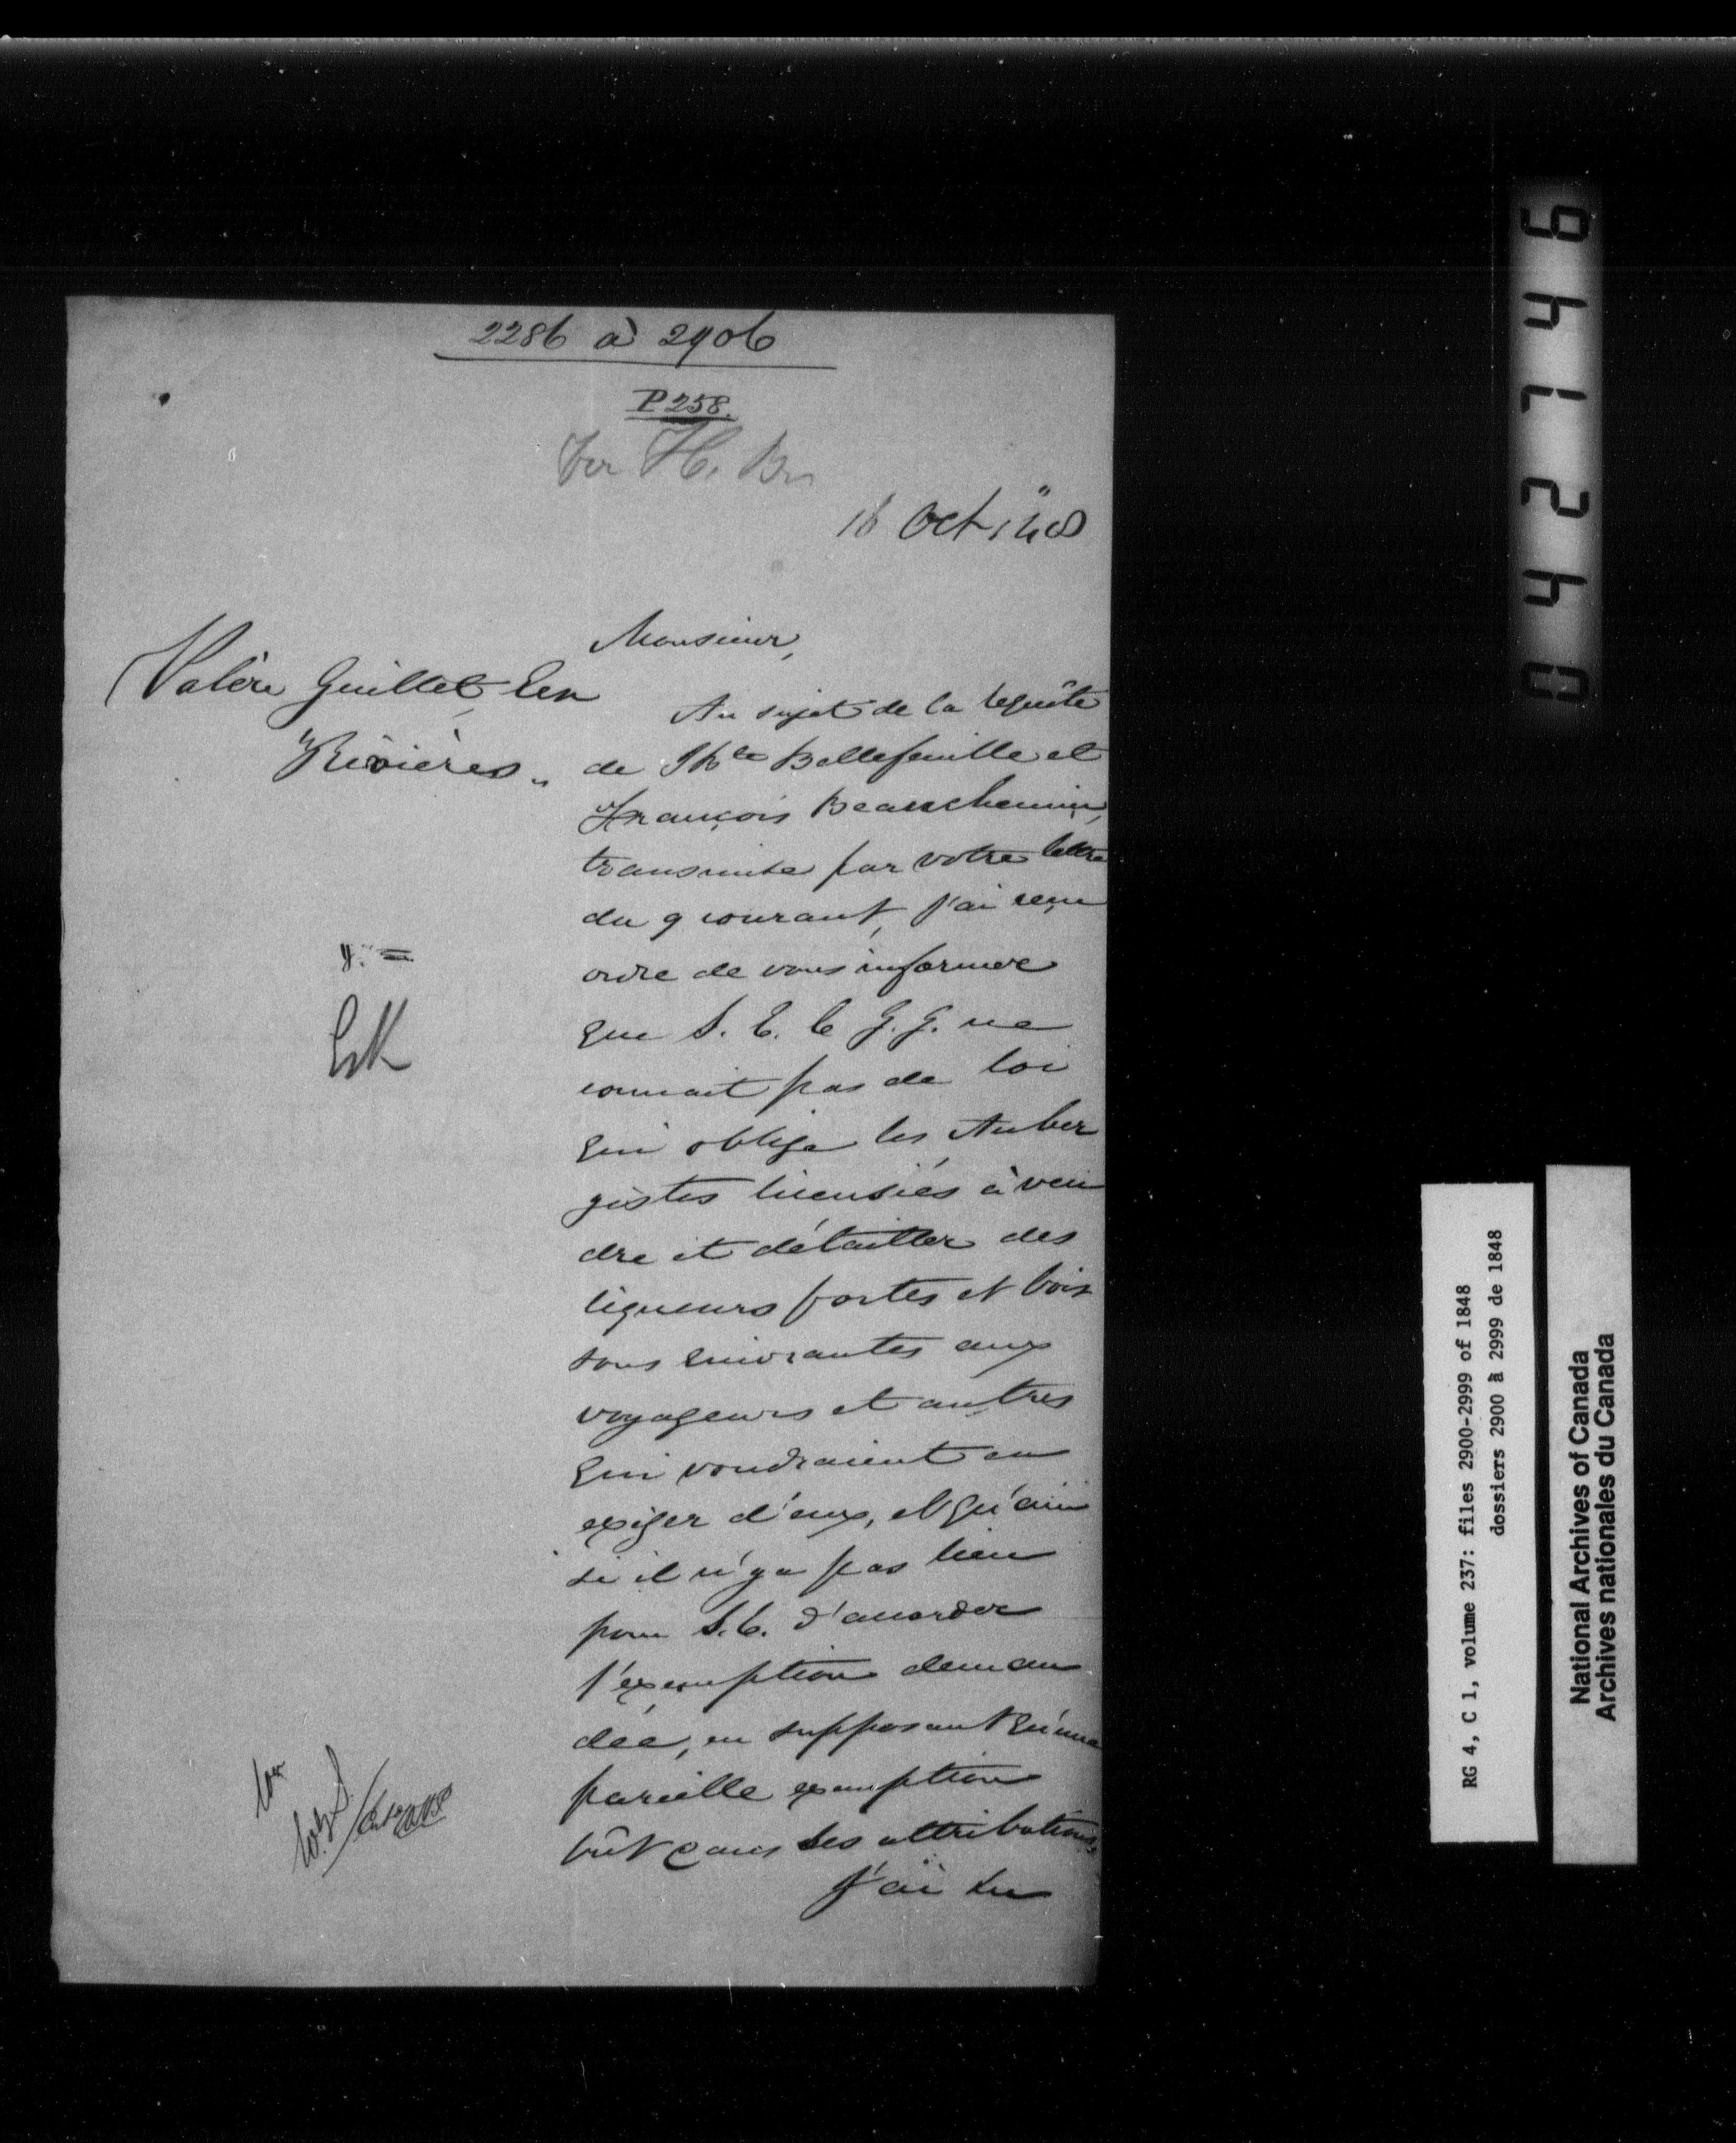 2286 à 2906
P 258.
16 Oct. 48
Monsieur,
Valère Guillet Ecr
3 Rivières.
Au sujet de la requête
de Bellefeuille et
François Beauchemin,
transmise par votre lettre
du 9 courant, j'ai reçu
ordre de vous informer
que S. E. le G. G. ne
connait pas de loi
qui oblige les Auber
gistes licensiés à ven
dre et détailler des
liqueurs fortes et bois
sons enivrantes aux
voyageurs et autres
qui voudraient en
exiger d'eux, et qu'ain
si il n'y a pas lieu
pour S. E. d'accorder
l'exemption deman
dée, en supposant qu'une
pareille exemption
fût dans ses attributions,
J'ai
0 4 2 7 4 4 6
RG 4, C 1, volume 237: files 2900-2999 of 1848
dossiers 2900 à 2999 de 1848
National Archives of Canada
Archives nationales du Canada